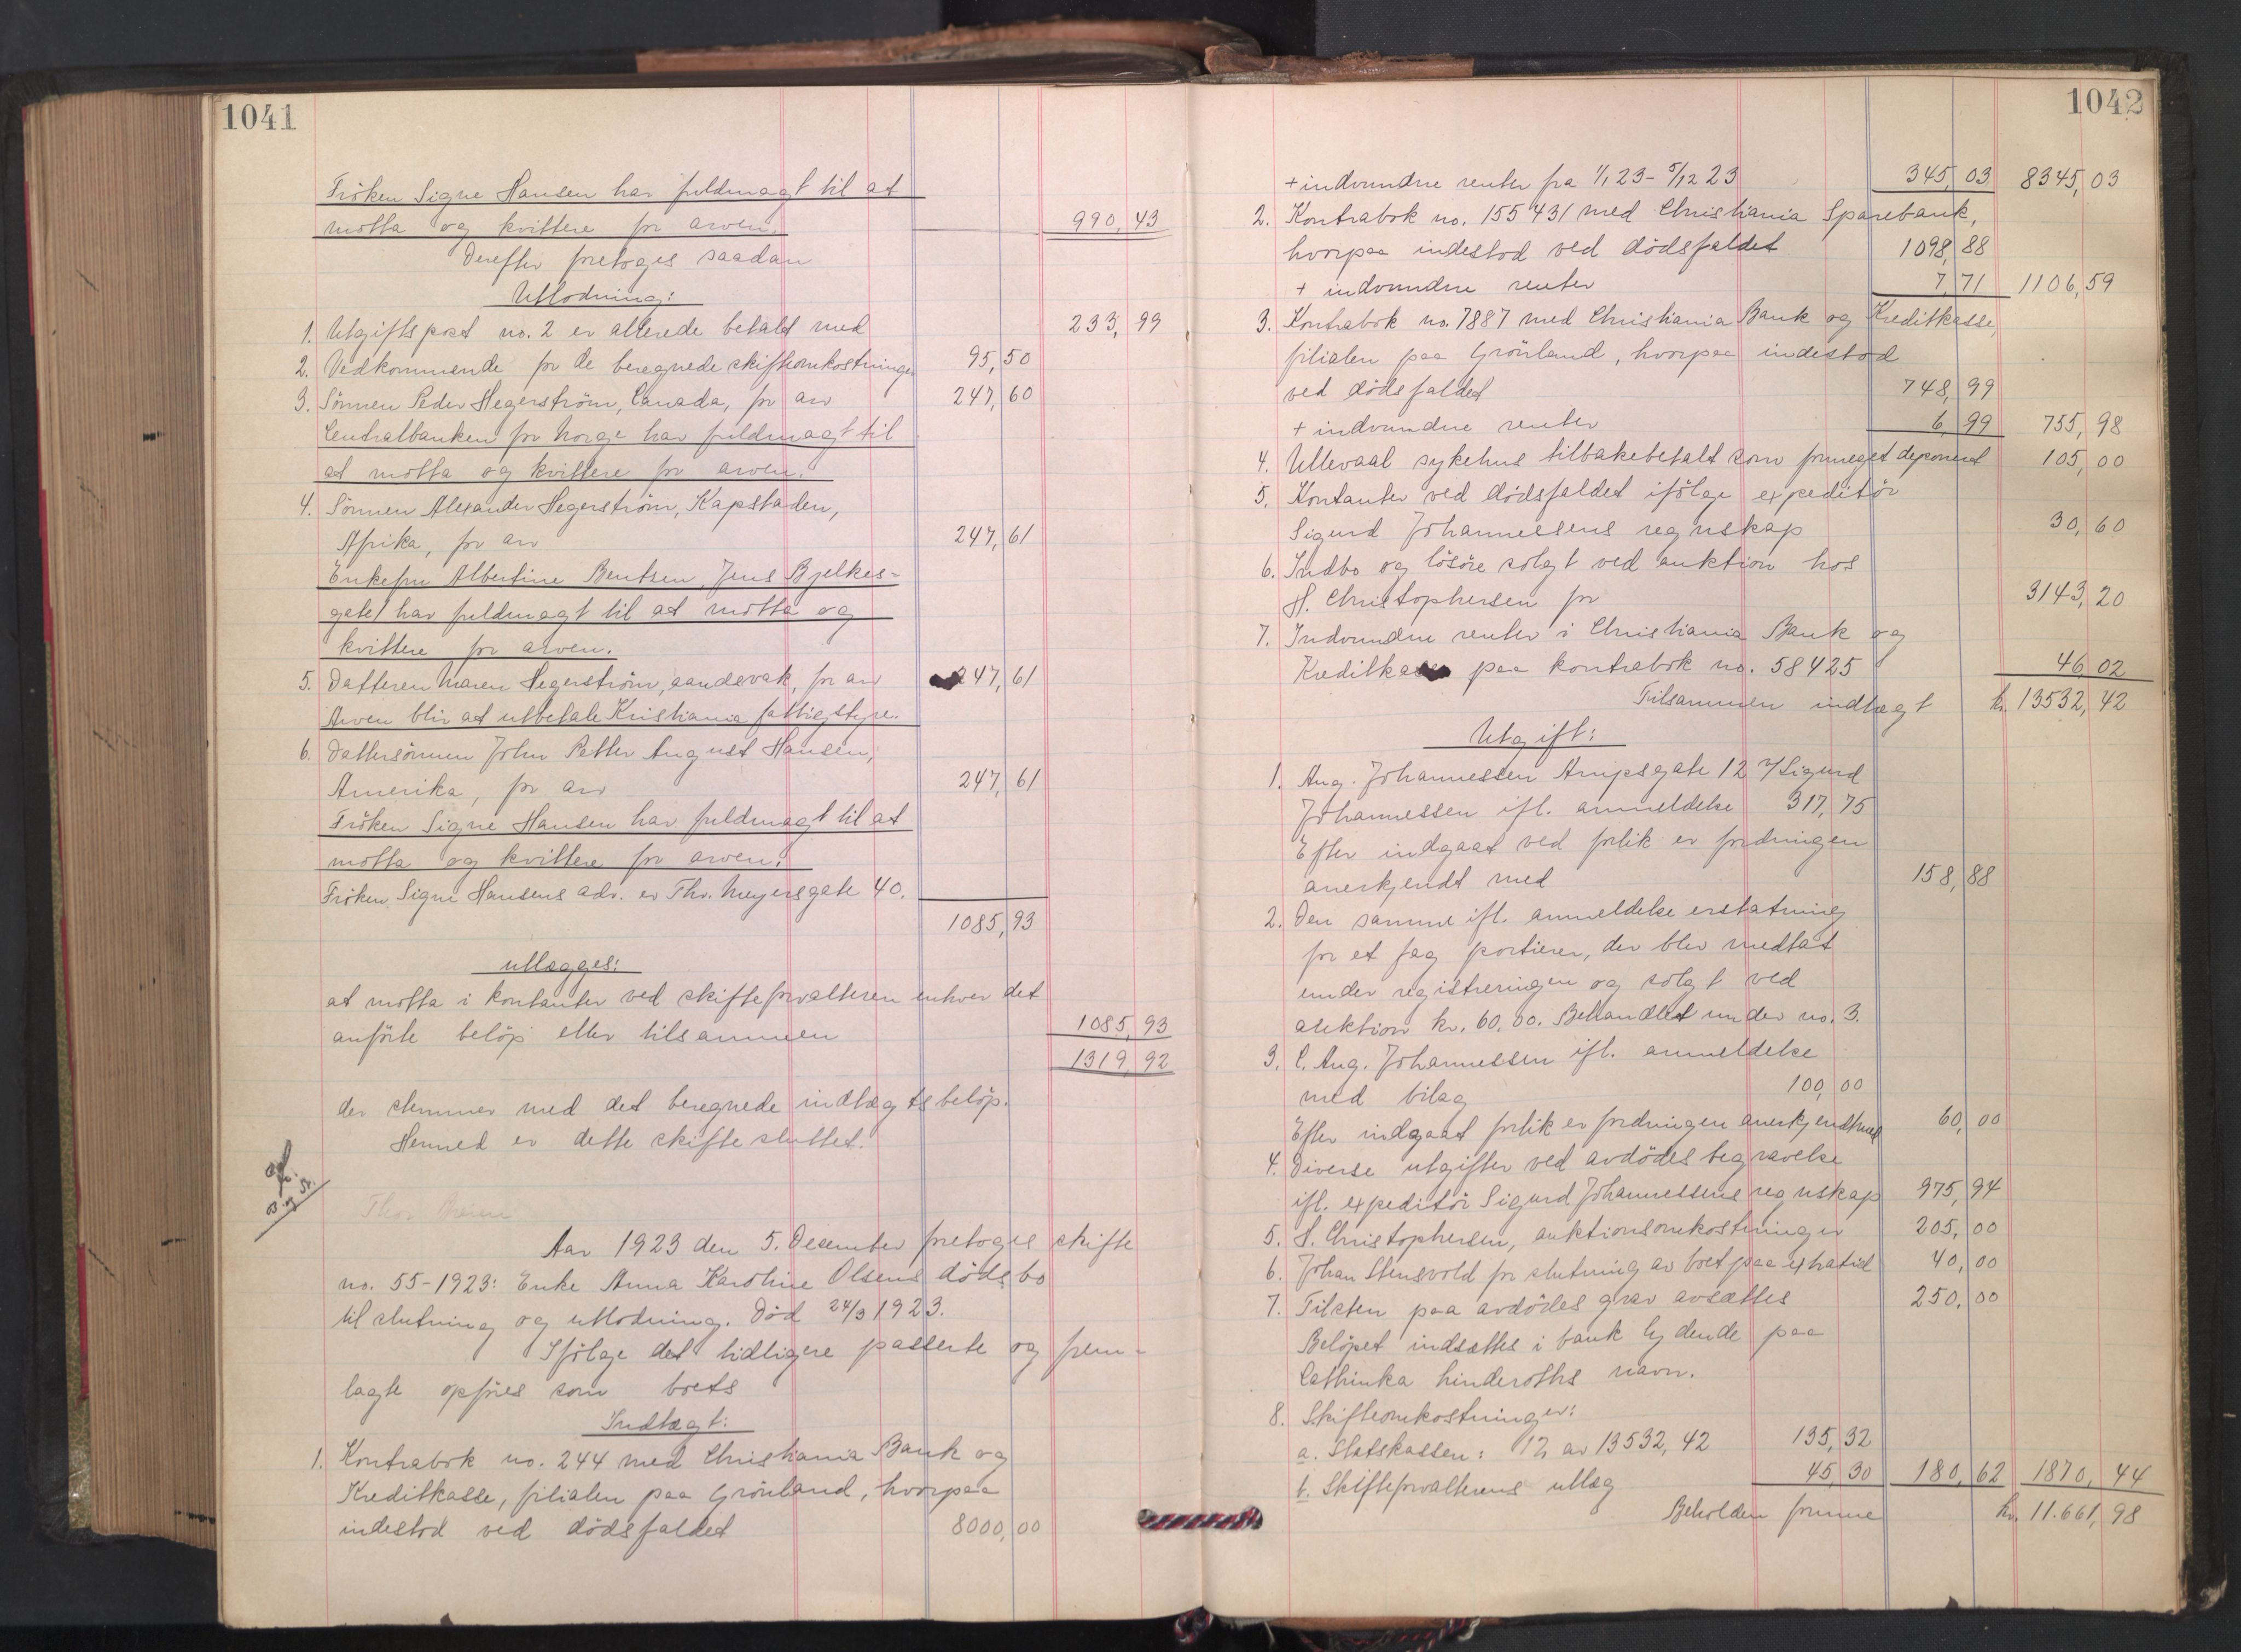 1041
Frøken Signe Hansen har fuldmagt til at
motta og kvittere for arven. 990,43
Derefter foretoges saadan
Utlodning:
1. Utgiftspost no. 2 er allerede betalt med 233,99
2. Vedkommende for de beregnede skifteomkostninger 95,50
3. Sønnen Peder Hegerstrøm, Canada, for arv 247,60
Centralbanken for Norge har fuldmagt til
at motta og kvittere for arven.
4. Sønnen Alexander Hegerstrøm, Kapstaden,
Afrika, for arv 247,61
Enkefru Albertine Bentsen, Jens Bjelkes-
gate 1 har fuldmagt til at motta og
kvittere for arven.
5. Datteren Maren Hegerstrøm, aandsvak, for arv 247,61
Arven blir at utbetale Kristiania fattigstyre.
6. Dattersønnen John Petter August Hansen,
Amerika, for arv 247,61
Frøken Signe Hansen har fuldmagt til at
motta og kvittere for arven.
Frøken Signe Hansens adr. er Thv. Meyersgate 40.
1085,93
utlægges:
at motta i kontanter ved skifteforvalteren enhver det
anførte beløp eller tilsammen 1085,93
1319,92
der stemmer med det beregnede indtægtsbeløp.
Hermed er dette skifte sluttet.
Aar 1923 den 5. December foretoges skifte
no. 55-1923: Enke Anna Karoline Olsens dødsbo
til slutning og utlodning. Død 24/3 1923.
Ifølge det tidligere passerte og frem-
lagte opføres som boets
Indtægt:
1. Kontrabok no. 244 med Christiania Bank og
Kreditkasse, filialen paa Grønland, hvorpaa
indestod ved dødsfaldet 8000,00
1042
+ indvundne renter fra 1/1 23 - 5/12 23 345,03 8345,03
2. Kontrabok no. 155431 med Christiania Sparebank,
hvorpaa indestod ved dødsfaldet 1098,88
+ indvundne renter 7,71 1106,59
3. Kontrabok no. 7887 med Christiania Bank og Kreditkasse,
filialen paa Grønland, hvorpaa indestod
ved dødsfaldet 748,99
+ indvundne renter 6,99 755,98
4. Ullevaal sykehus tilbakebetalt som formeget deponert 105,00
5. Kontanter ved dødsfaldet ifølge expeditør
Sigurd Johannessens regnskap 30,60
6. Indbo og løsøre solgt ved auktion hos
H. Christophersen for 3143,20
7. Indvundne renter i Christiania Bank og
Kreditkasse paa kontrabok no. 58425 46,02
Tilsammen indtægt kr. 13532,42
Utgift:
1. Aug. Johannessen Arupsgate 12 v/ Sigurd
Johannessen ifl. anmeldelse 317,75
Efter indgaat ved forlik er fordringen
anerkjendt med 158,88
2. Den samme ifl. anmeldelse erstatning
for et fag portierer, der blev medtat
under registreringen og solgt ved
auktion kr. 60.00. Behandlet under no. 3.
3. C. Aug. Johannessen ifl. anmeldelse
med bilag 100,00
Efter indgaat forlik er fordringen anerkjendt med 60,00
4. Diverse utgifter ved avdødes begravelse
ifl. expeditør Sigurd Johannessens regnskap 975,94
5. H. Christophersen, auktionsomkostninger 205,00
6. Johan Stensvold for slutning av boet paa extratid 40,00
7. Tilsten paa avdødes grav avsættes 250,00
Beløpet indsættes i bank lydende paa
Cathinka Hinderoths navn.
8. Skifteomkostninger:
a. Statskassen: 1% av 13532,42 135,32
b. Skifteforvalterens utlæg 45,30 180,62 1870,44
Beholden formue kr. 11.661,98